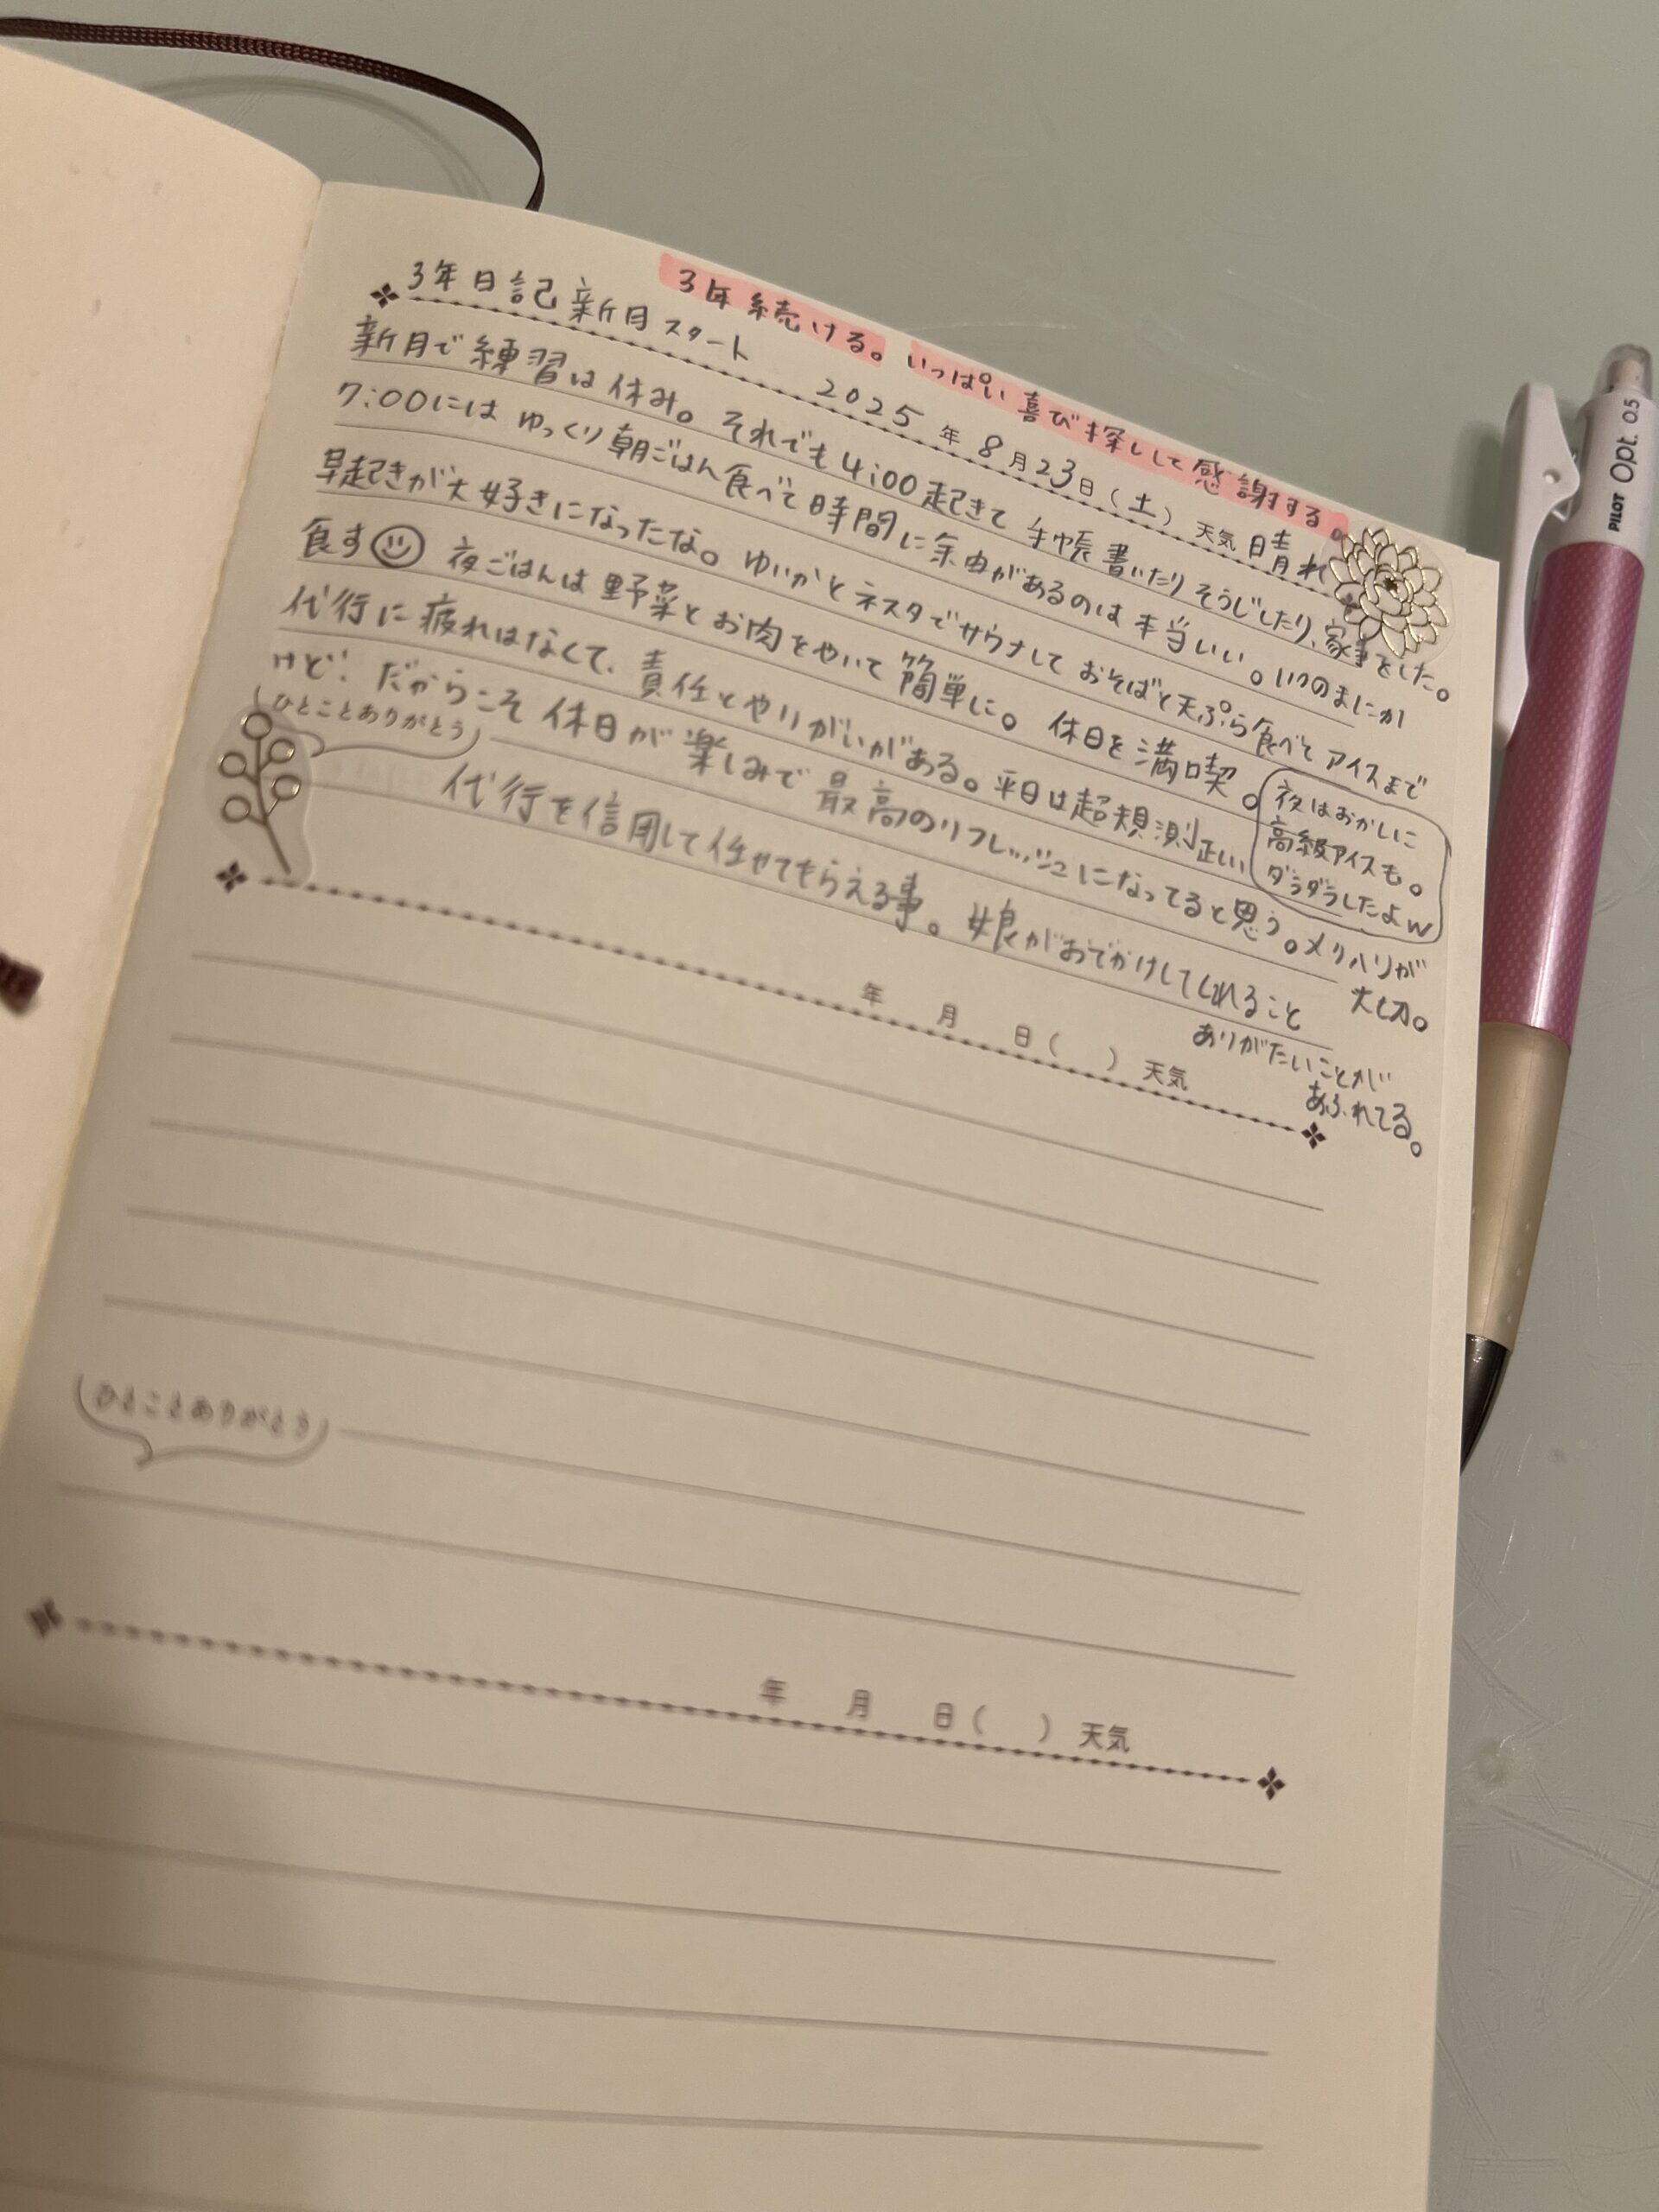 3年続ける。いっぱい喜び探しして感謝する。
3年日記新月スタート 2025年8月23日(土) 天気 晴れ
新月で練習は休み。それでも4:00起きて手帳書いたりそうじしたり、家事をした。
7:00にはゆっくり朝ごはん食べて時間に余由があるのは本当いい。いつのまにか
早起きが大好きになったな。ゆいかとネスタでサウナしておそばと天ぷら食べてアイスまで
食す 夜ごはんは野菜とお肉をやいて簡単に。休日を満喫。
夜はおかしに
高級アイスも。
ダラダラしたよw
代行に疲れはなくて、責任とやりがいがある。平日は超規則正しい
けど!だからこそ休日が楽しみで最高のリフレッシュになってると思う。メリハリが
大切。
ひとことありがとう
代行を信用して任せてもらえる事。娘がおでかけしてくれること
ありがたいことが
あふれてる。
年 月 日( ) 天気
ひとことありがとう
年 月 日( ) 天気
PILOT Opt. 0.5